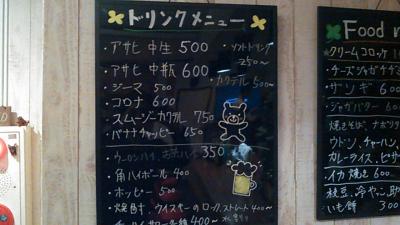 ドリンクメニュー
・アサヒ 中生 500
・アサヒ 中瓶 600
・ジーマ 500
・コロナ 600
・スムージーカクテル 750
・バナナチャッピー 650
・ウーロンハイ、お茶ハイ 350
・角ハイボール 400
・ホッピー 500
・焼酎、ウイスキーのロック、ストレート 400~
400~
・ソフトドリンク
250~
・カクテル 500~
Food
クリームコロッケ
チーズ
600
ジャガバター 600
焼きそば、ナポリタ
ウドン、チャーハン
カレーライス、ピザ
イカ焼き 600
枝豆、冷やっこ
いも餅 300